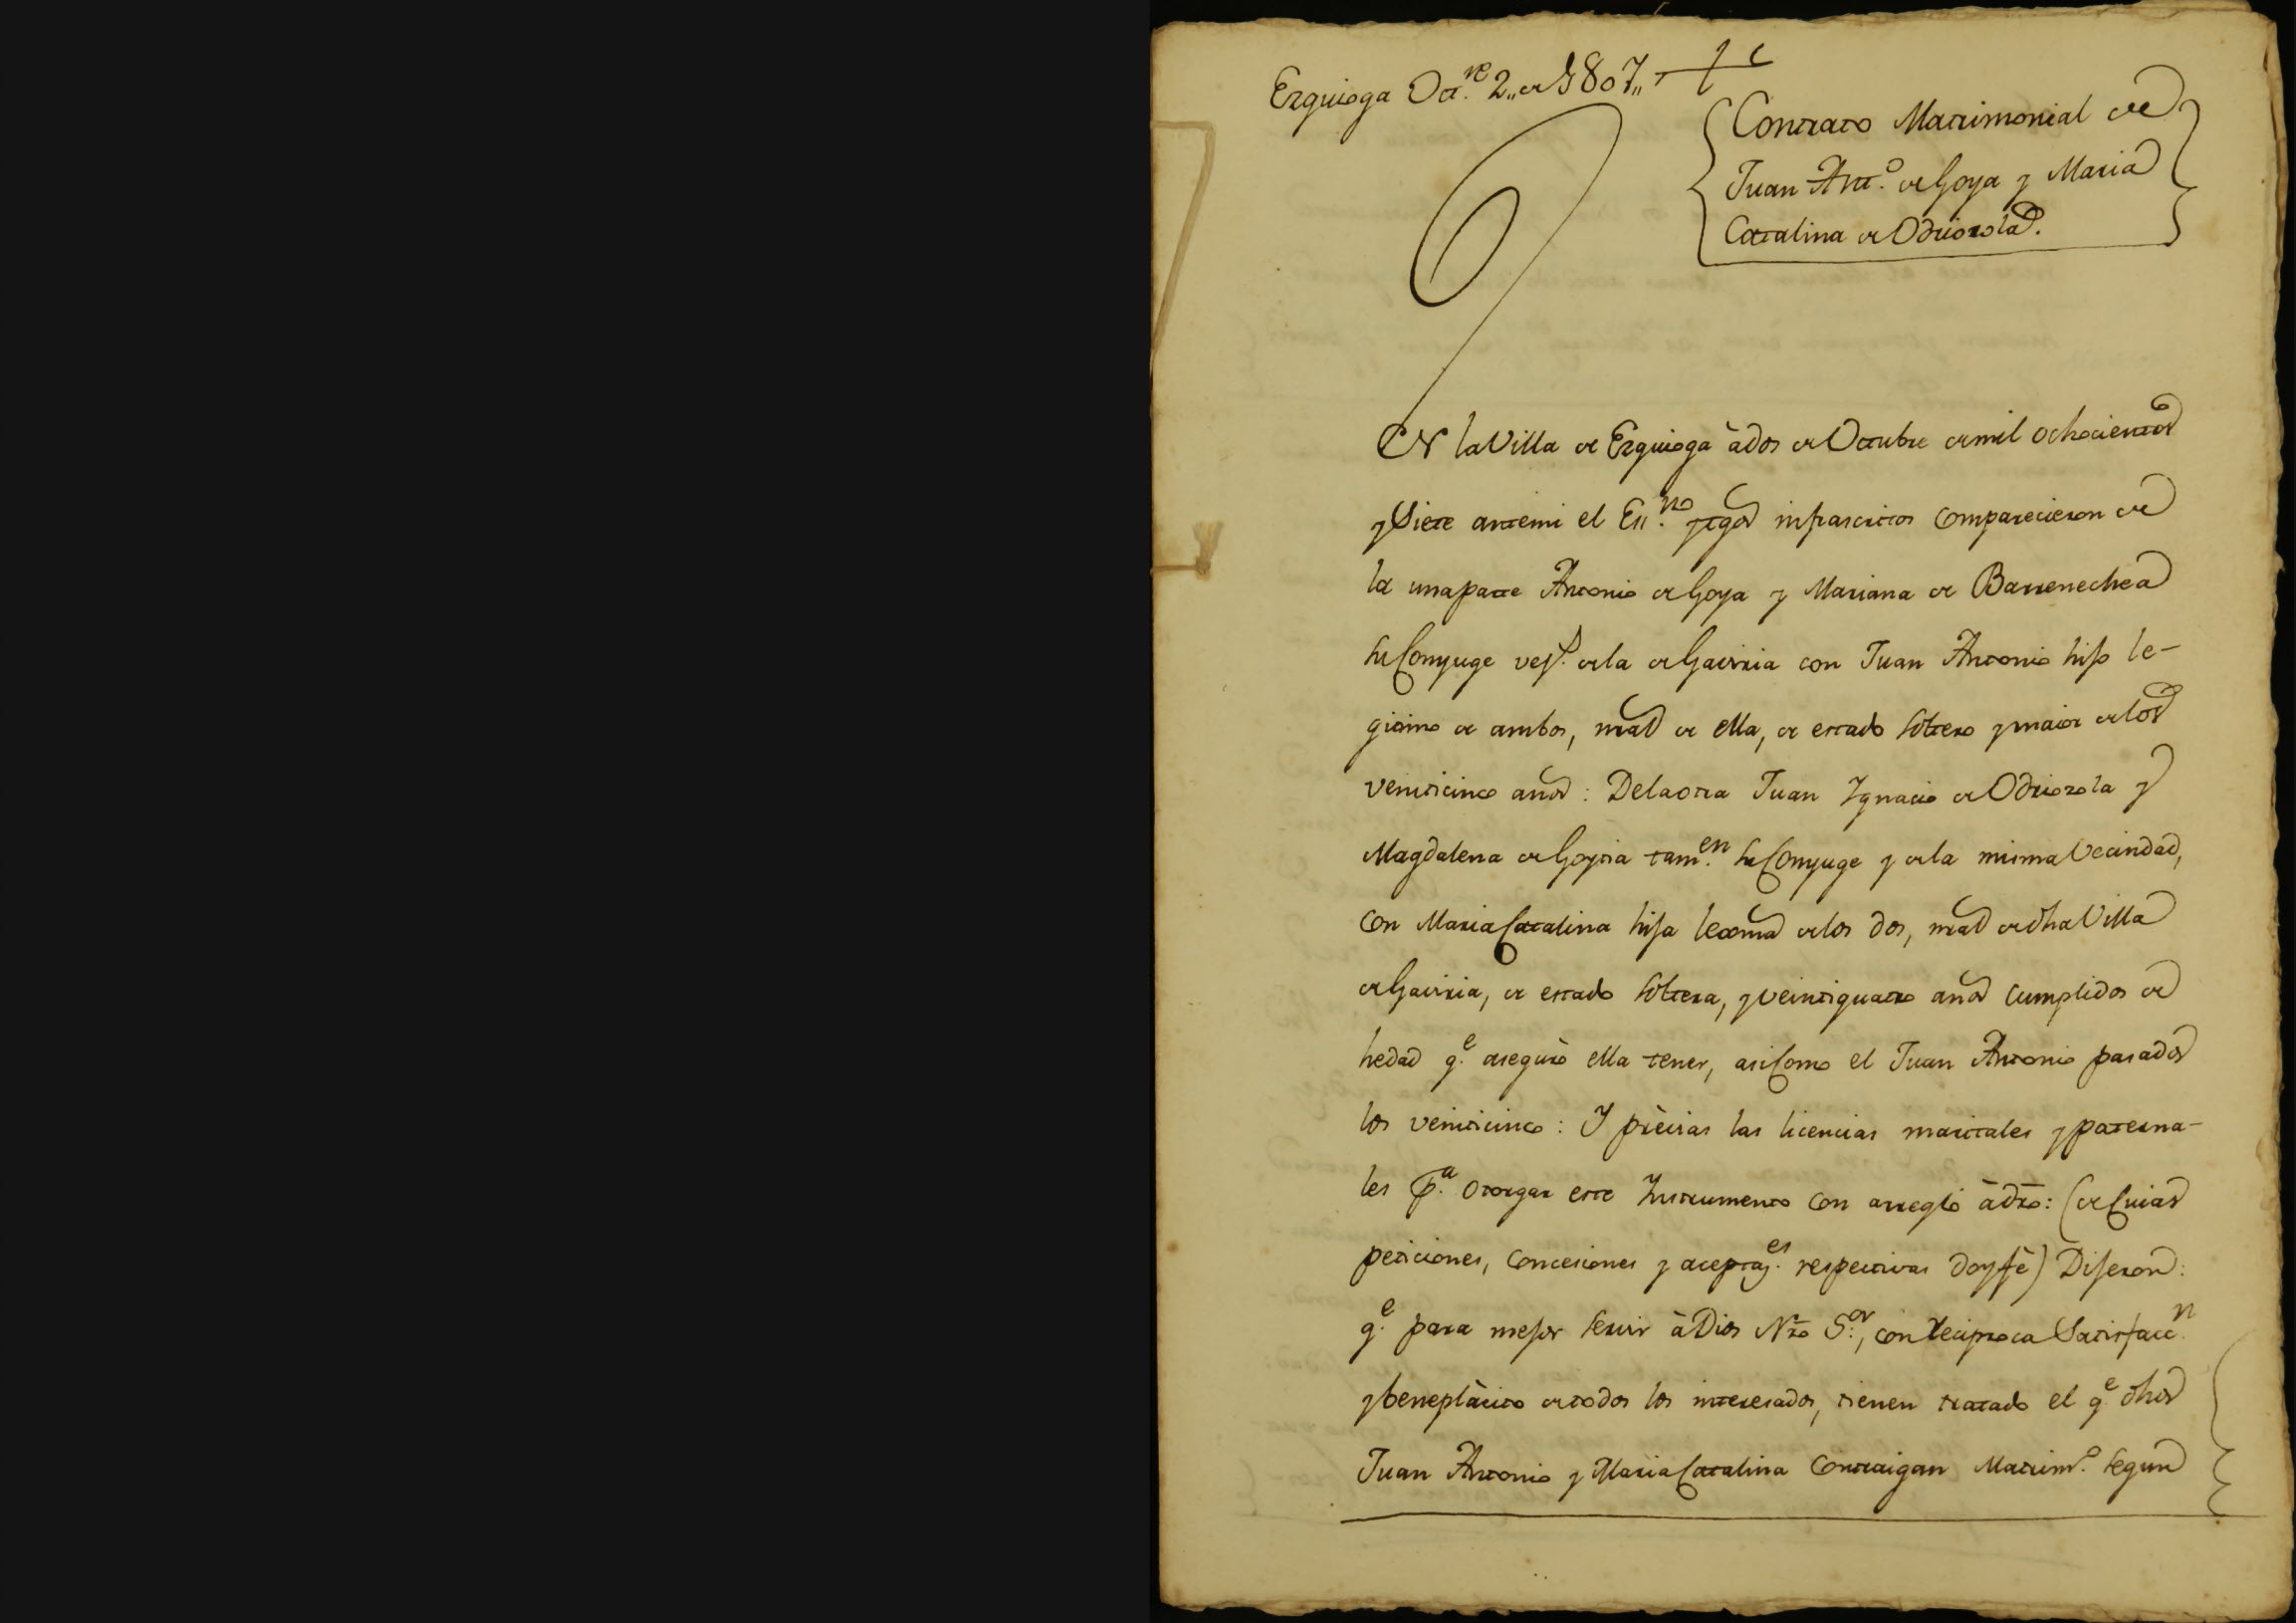 Ezquioga Oct.re 2,, de 1807,,
Contrato Matrimonial de
Juan Ant.o de Goya y Maria
Catalina de Odriozola.
EN la Villa de Ezquioga à dos de Octubre de mil ochocientos
y Siete ante mi el Es.no y tgos infrascritos comparecieron de
la una parte Antonio de Goya y Mariana de Barrenechea
su Conyuge vez.s de la de Gaviria con Juan Antonio hijo le-
gitimo de ambos, nral de ella, de estado soltero y maior de los
veinticinco años: De la otra Juan Ygnacio de Odriozola y
Magdalena de Goytia tam.en su Conyuge y de la misma Vecindad,
con Maria Catalina hija lexma de los dos, nral de dha Villa
de Gaviria, de estado soltera, y veintiquatro años cumplidos de
hedad q.e aseguró ella tener, asi Como el Juan Antonio pasados
los veinticinco: Y prèvias las licencias maritales y paterna-
les p.a otorgar este Instrumento con arreglo à dro: (de Cuias
peticiones, concesiones y aceptaz.es respectivas doy fè) Dijeron:
q.e para mejor servir à Dios Nro S.or, con reciproca Satisfacc.n
y beneplàcito de todos los interesados, tienen tratado el q.e dhos
Juan Antonio y Maria Catalina Contraigan Matrim.o segun